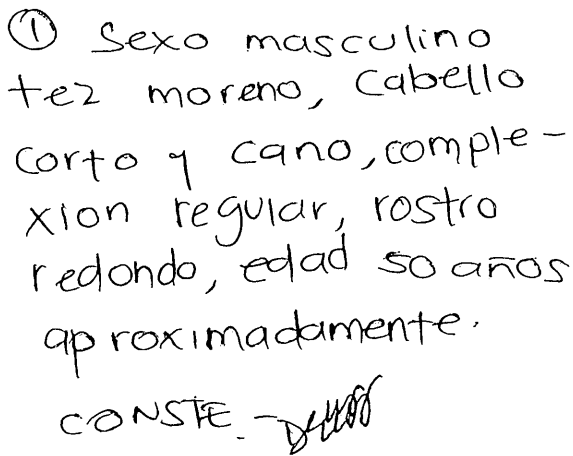 ① Sexo masculino
tez moreno, Cabello
corto y cano, comple-
xion regular, rostro
redondo, edad 50 años
aproximadamente.
CONSTE.-